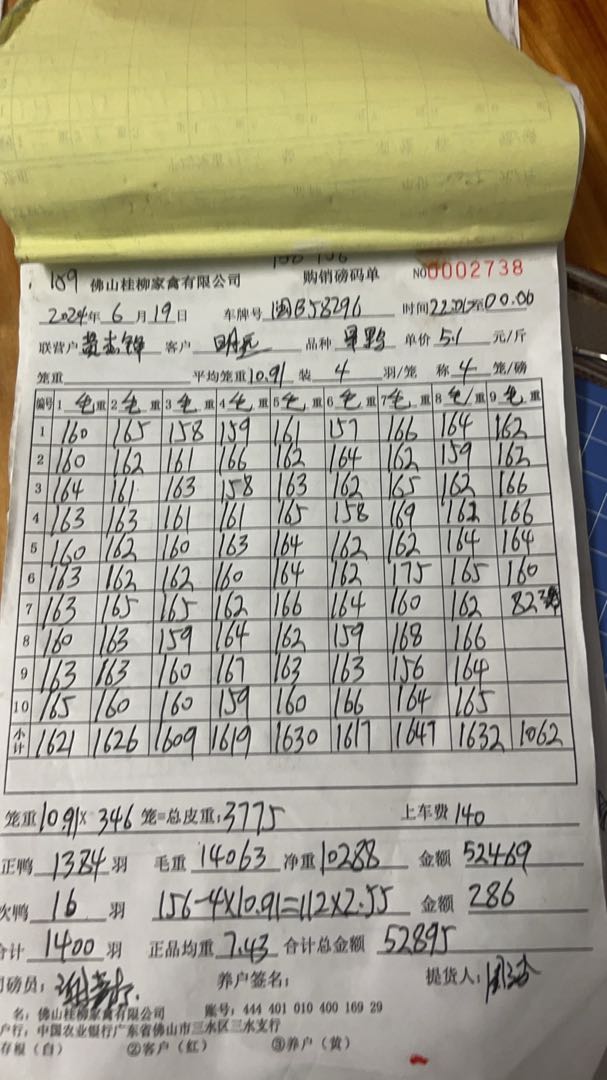 159 佛山桂柳家禽有限公司 购销磅码单 NO0002738
2024年 6 月 19 日 车牌号 闽B58296 时间 22:06至00:06
联营户 客户 明远 品种 单价 5.1 元/斤
笼重 平均笼重 10.91 装 4 羽/笼 称 4 笼/磅
编号 1 毛重 2 毛重 3 毛重 4 毛重 5 毛重 6 毛重 7 毛重 8 毛重 9 毛重
1 160 165 158 159 161 157 166 164 162
2 160 162 161 166 162 164 162 159 162
3 164 161 163 158 163 162 165 162 166
4 163 163 161 161 165 158 169 162 166
5 160 162 160 163 164 162 162 164 164
6 163 162 162 160 164 162 175 165 160
7 163 165 165 162 166 164 160 162 82
8 160 163 159 164 162 159 168 166
9 163 163 160 167 163 163 156 164
10 165 160 160 159 160 166 164 165
小计 1621 1626 1609 1619 1630 1617 1647 1632 1062
笼重 10.91× 346 笼=总皮重: 3775 上车费 140
正鸭 1384 羽 毛重 14063 净重 10288 金额 52469
次鸭 16 羽 156-4×10.91=112×2.55 金额 286
合计 1400 羽 正品均重 7.43 合计总金额 52895
司磅员: 养户签名: 提货人:
名: 佛山桂柳家禽有限公司 账号: 444 401 010 400 169 29
户行: 中国农业银行广东省佛山市三水区三水支行
存根（白） ②客户（红） ③养户（黄）